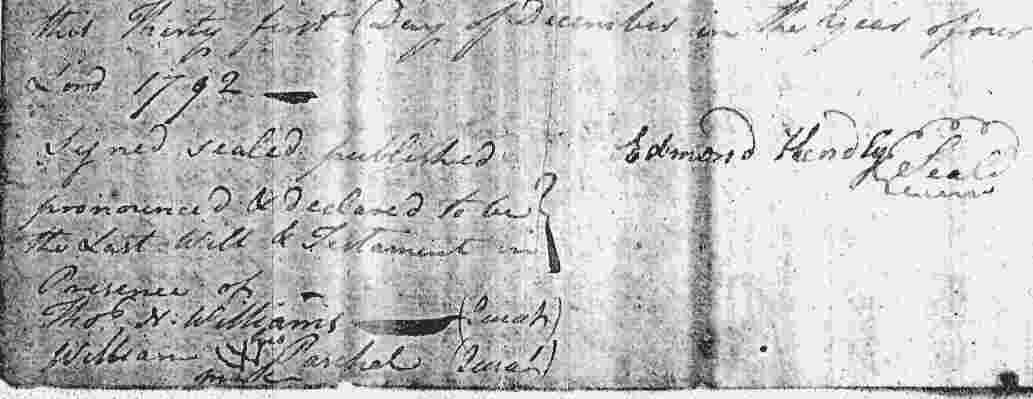 this Thirty first Day of December in the Year of our
Lord 1792
Signed sealed published
pronounced & declared to be
the Last Will & Testament in
Presence of
Edmond Hendly Seal
Thos. N. Williams (Jurat)
William his mark Parchel (Jurat)